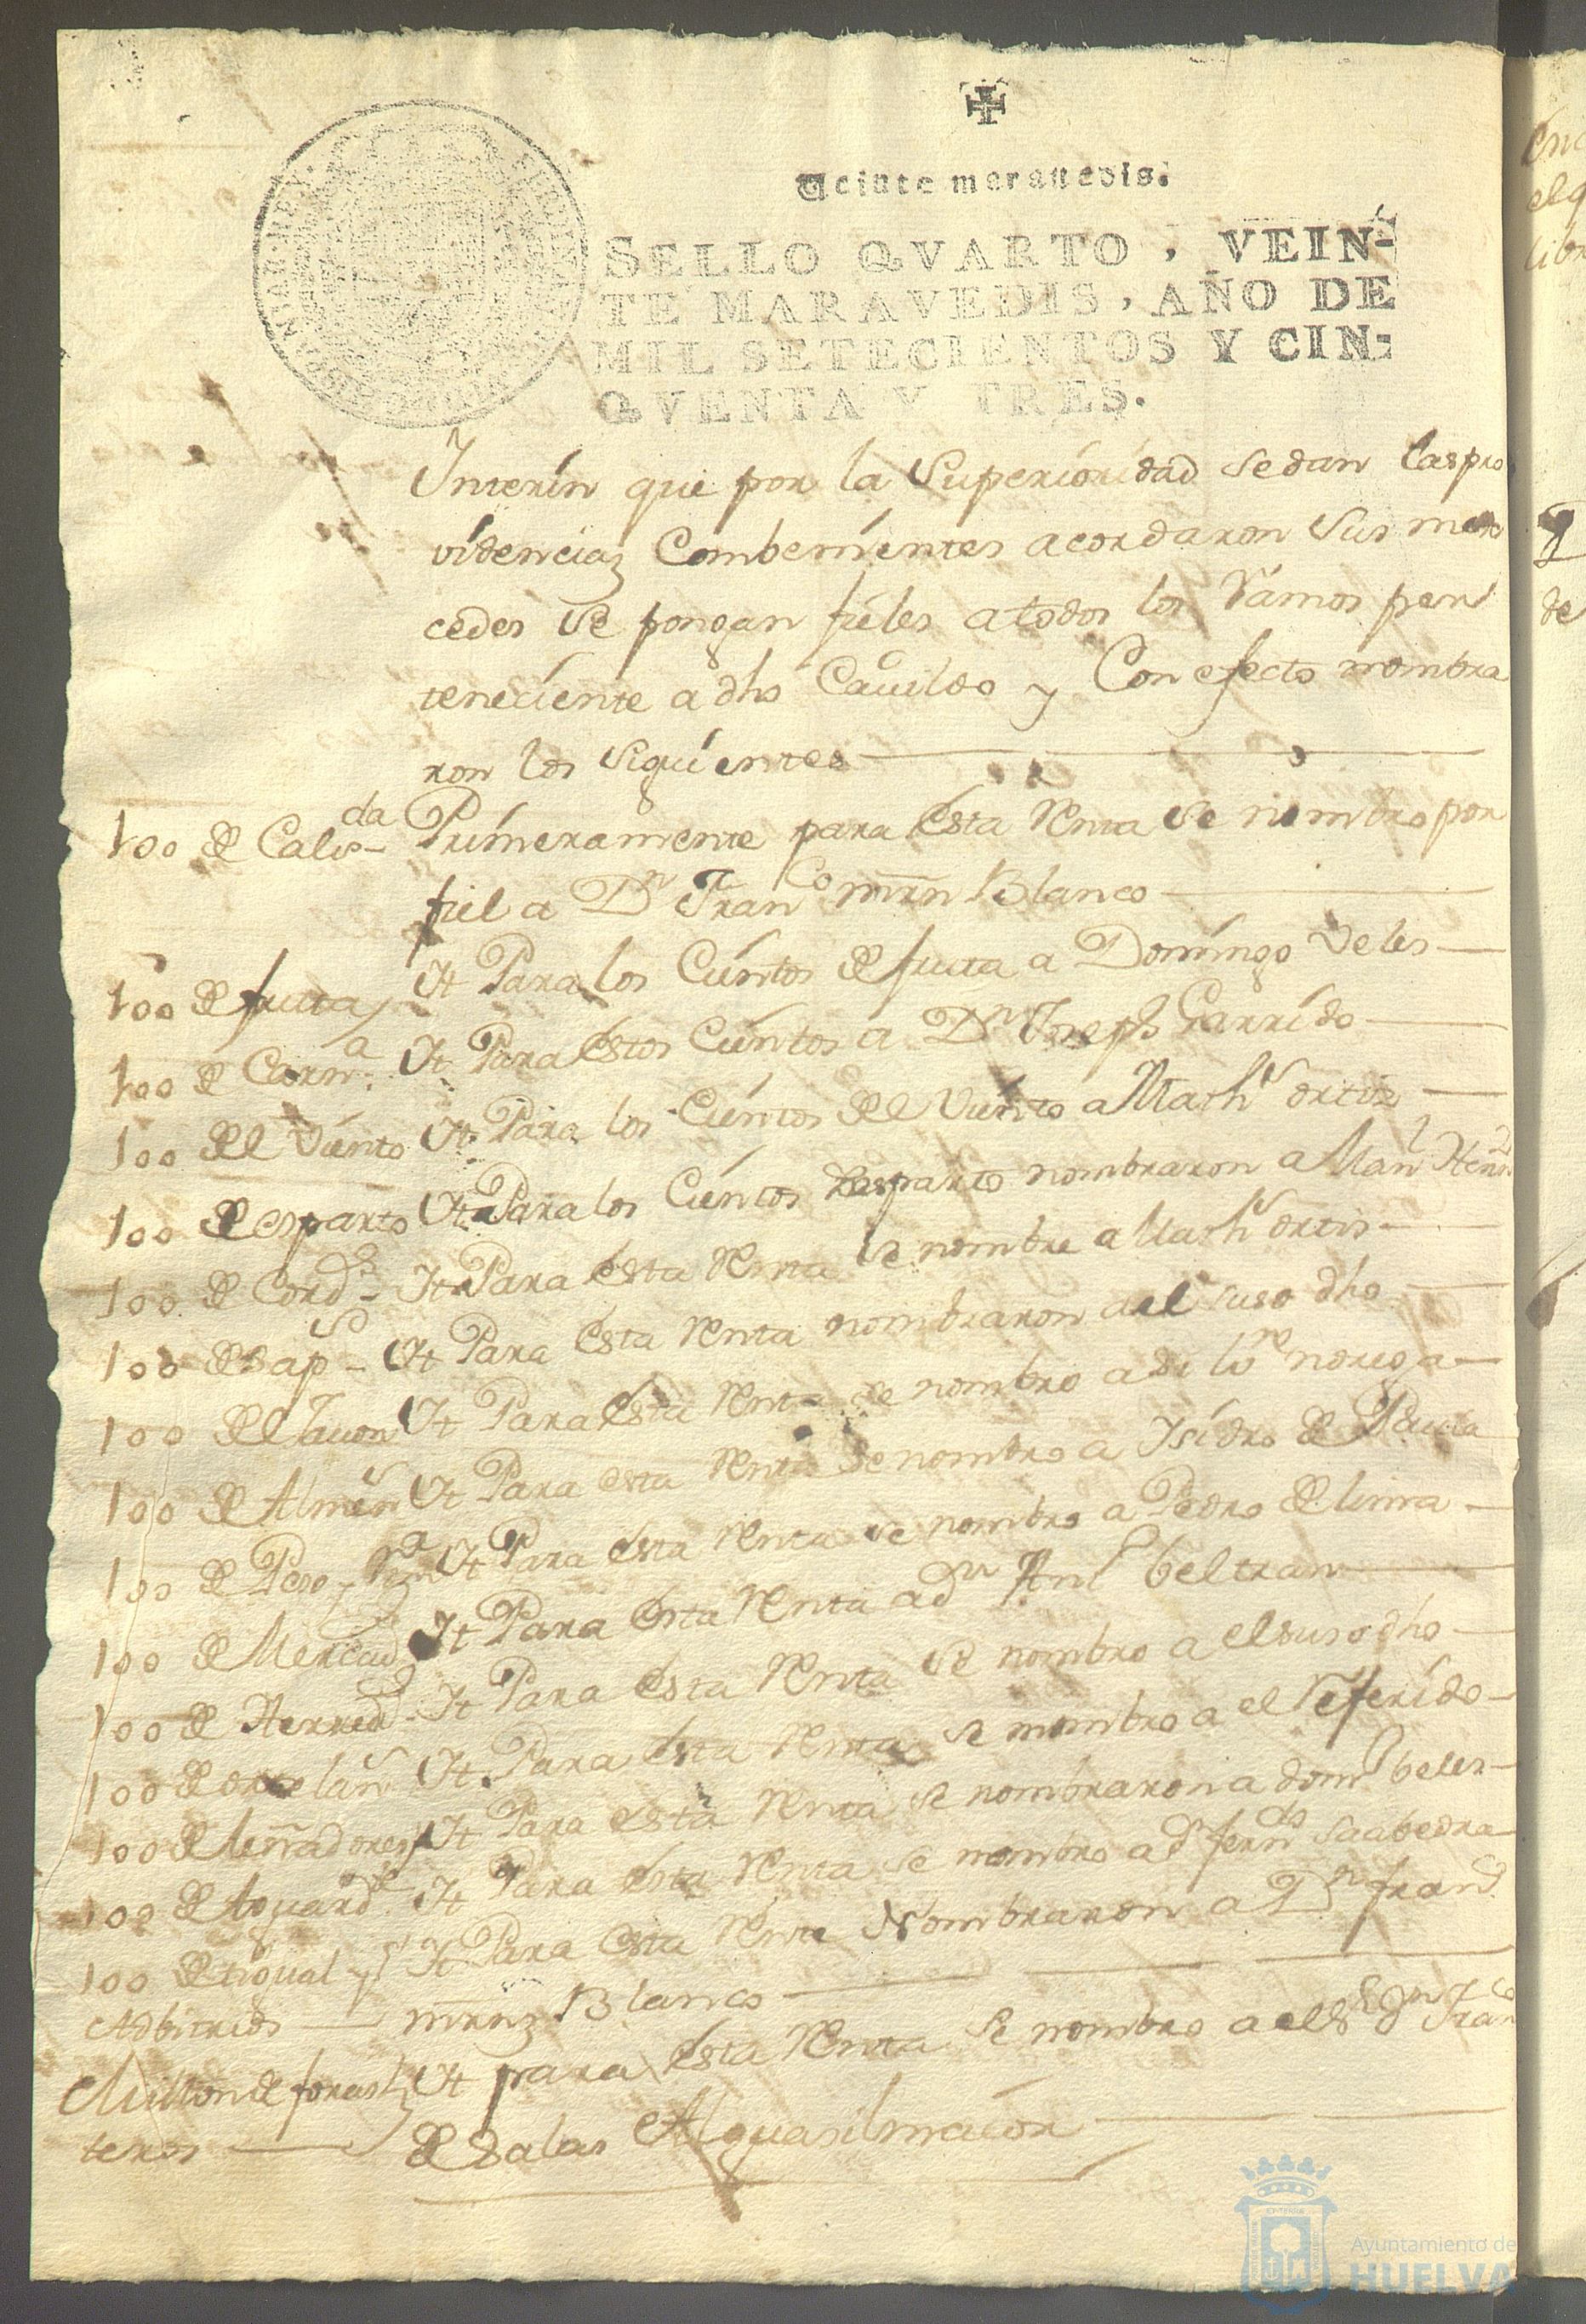 Veinte marauedis.
SELLO QVARTO, VEIN-
TE MARAVEDIS, AÑO DE
MIL SETECIENTOS Y CIN-
QVENTA Y TRES.
Ynterin que por la Superioridad se dan las pro
videncias Combenientes acordaron Sus mer
cedes Se pongan fieles a todos los Ramos per
teneciente a dho Cauildo y Con efecto nombra
ron los Siguientes
100 de Calis da Primeramente para esta Renta se nombro por
fiel a Dn Franco mrn Blanco
100 de fruta Yt Para los Cientos de fruta a Domingo Veles
100 de Carn.a Yt Para estos Cientos a Dn Joseph Garrido
100 del Viento Yt Para los Cientos del Viento a Math ortiz
100 de esparto Yt Para los Cientos de esparto nombraron a Manl Hern
100 de Cord Yt Para esta Renta se nombre a Math ortis
100 de sap Yt Para esta Renta nombraron a el suso dho
100 del Yt Para esta Renta se nombro a noriega
100 de Almen Yt Para esta Renta se nombro a Isidro de
100 de Peso y Yt Para esta Renta se nombro a Pedro de lima
100 de Mercad Yt Para esta Renta a dn Antº beltran
100 de Herred Yt Para esta Renta se nombro a el suso dho
100 de ortelan Yt Para esta Renta se nombro a el Referido
100 de leñadores Yt Para esta Renta se nombraron a domº beles
100 de Aguard Yt Para esta Renta se nombro a dn ferndo Saabedra
100 de y Yt Para esta Renta Nombraron a Dn Franco
Adbitrios mrnz Blanco
Millon de foras Yt para esta Renta se nombro a el Sr dn Franco
teros de Salas Alguasilmaior
Ayuntamiento de
HUELVA